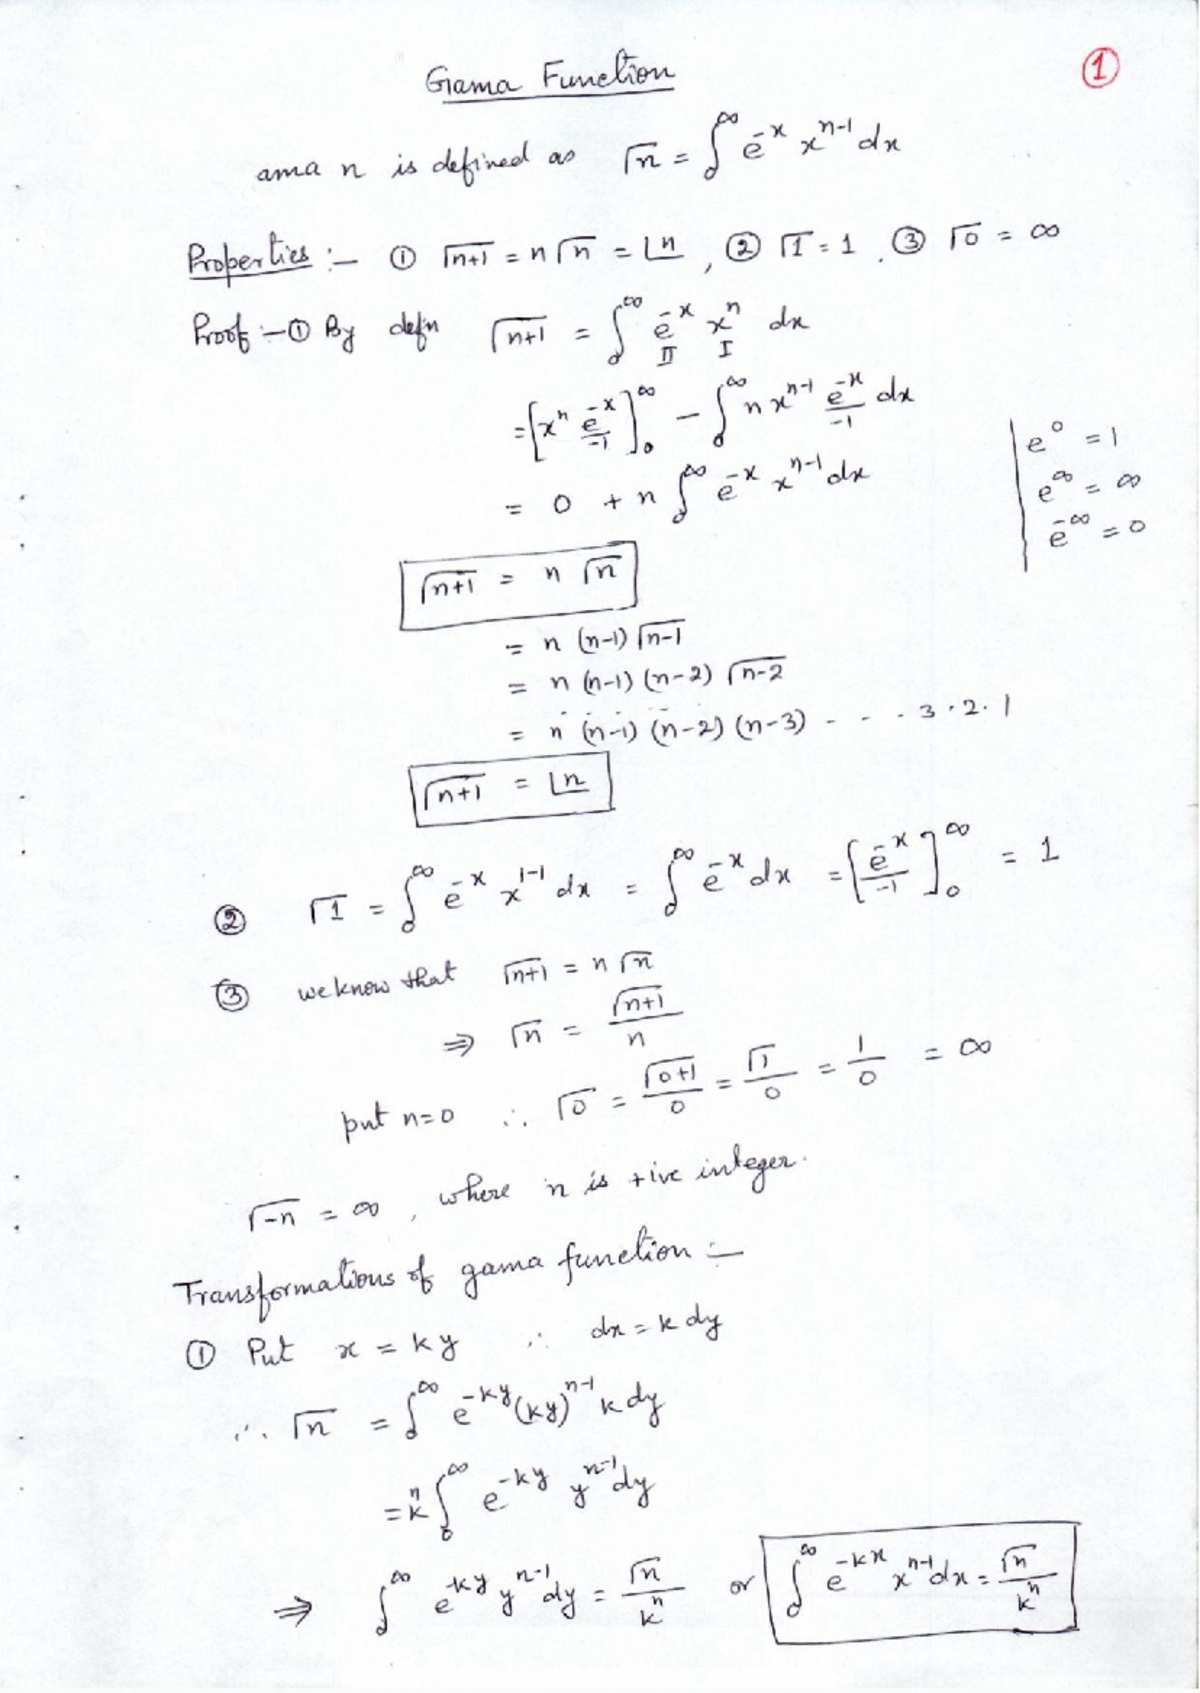 Gama Function
①
ama n is defined as Γn = ∫₀^∞ e^-x x^n-1 dx
Properties :- ① Γn+1 = n Γn = ⌊n , ② Γ1 = 1 , ③ Γ0 = ∞
Proof :- ① By defn Γn+1 = ∫₀^∞ e^-x x^n dx
II I
= [x^n e^-x/-1]₀^∞ - ∫₀^∞ n x^n-1 e^-x/-1 dx
e^0 = 1
= 0 + n ∫₀^∞ e^-x x^n-1 dx
e^∞ = ∞
e^-∞ = 0
Γn+1 = n Γn
= n (n-1) Γn-1
= n (n-1) (n-2) Γn-2
= n (n-1) (n-2) (n-3) - - - . 3 . 2 . 1
Γn+1 = ⌊n
② Γ1 = ∫₀^∞ e^-x x^1-1 dx = ∫₀^∞ e^-x dx = [e^-x/-1]₀^∞ = 1
③ we know that Γn+1 = n Γn
⇒ Γn = Γn+1/n
put n=0 ∴ Γ0 = Γ0+1/0 = Γ1/0 = 1/0 = ∞
Γ-n = ∞ , where n is +ive integer.
Transformations of gama function :-
① Put x = ky ∴ dx = k dy
∴ Γn = ∫₀^∞ e^-ky (ky)^n-1 k dy
= k^n ∫₀^∞ e^-ky y^n-1 dy
⇒ ∫₀^∞ e^-ky y^n-1 dy = Γn/k^n or ∫₀^∞ e^-kx x^n-1 dx = Γn/k^n